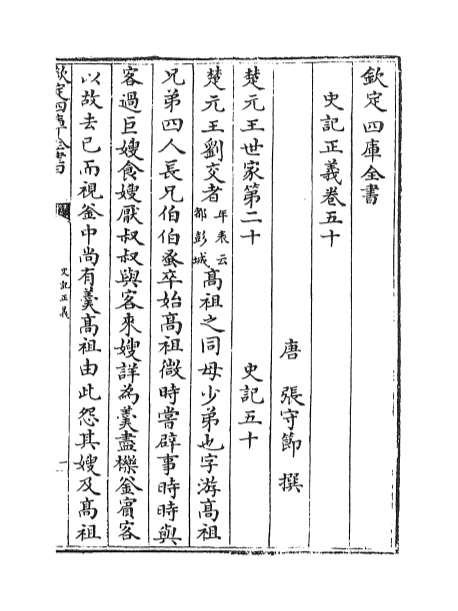 欽定四庫全書
史記正義卷五十
唐 張守節 撰
楚元王世家第二十 史記五十
楚元王劉交者年表云都彭城高祖之同母少弟也字游高祖
兄弟四人長兄伯伯蚤卒始高祖微時嘗辟事時時與
客過巨嫂食嫂厭叔叔與客來嫂詳為羹盡櫟釜賓客
以故去已而視釜中尚有羹高祖由此怨其嫂及高祖
欽定四庫全書
史記正義
一